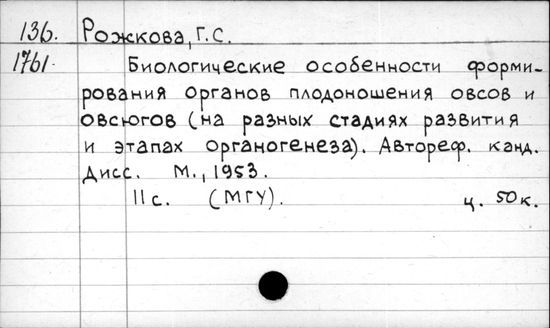 136. Рожкова, Г.С.
1761. Биологические особенности форми-
рования органов плодоношения овсов и
овсюгов (на разных стадиях развития
и этапах органогенеза). Автореф. канд.
дисс. М., 1953.
11 с. (МГУ). ц. 50 к.